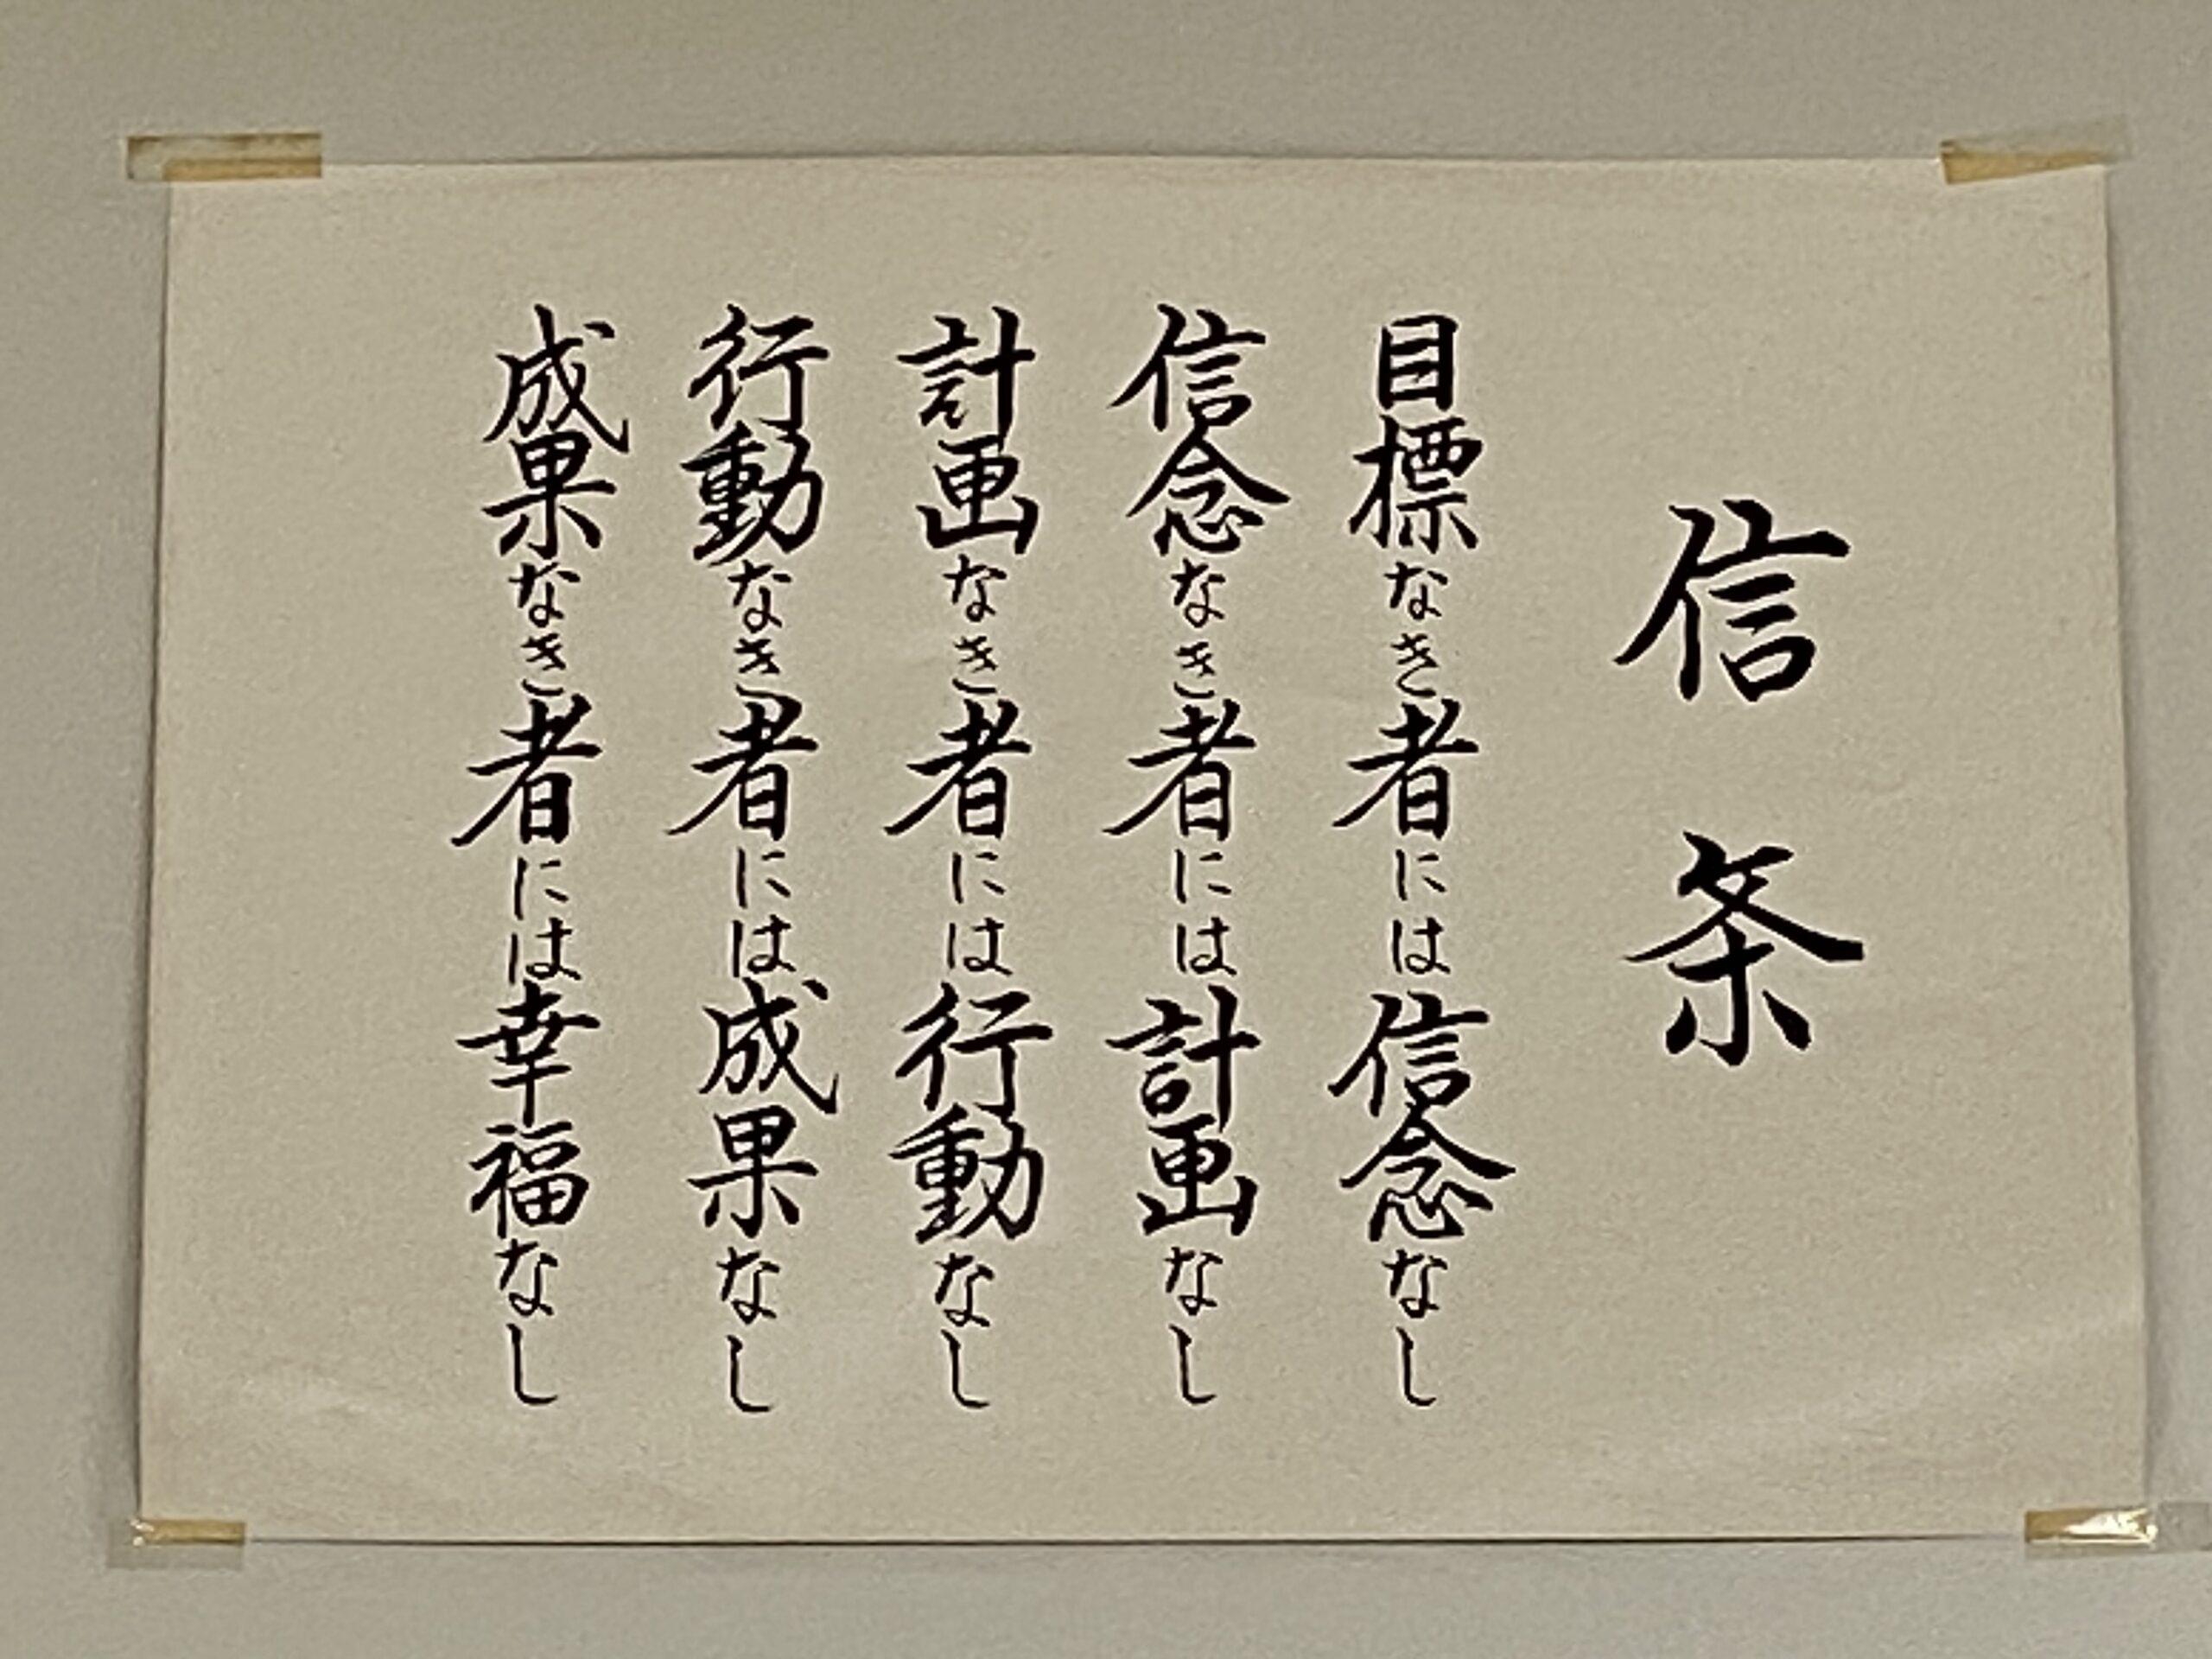 信条
目標なき者には信念なし
信念なき者には計画なし
計画なき者には行動なし
行動なき者には成果なし
成果なき者には幸福なし